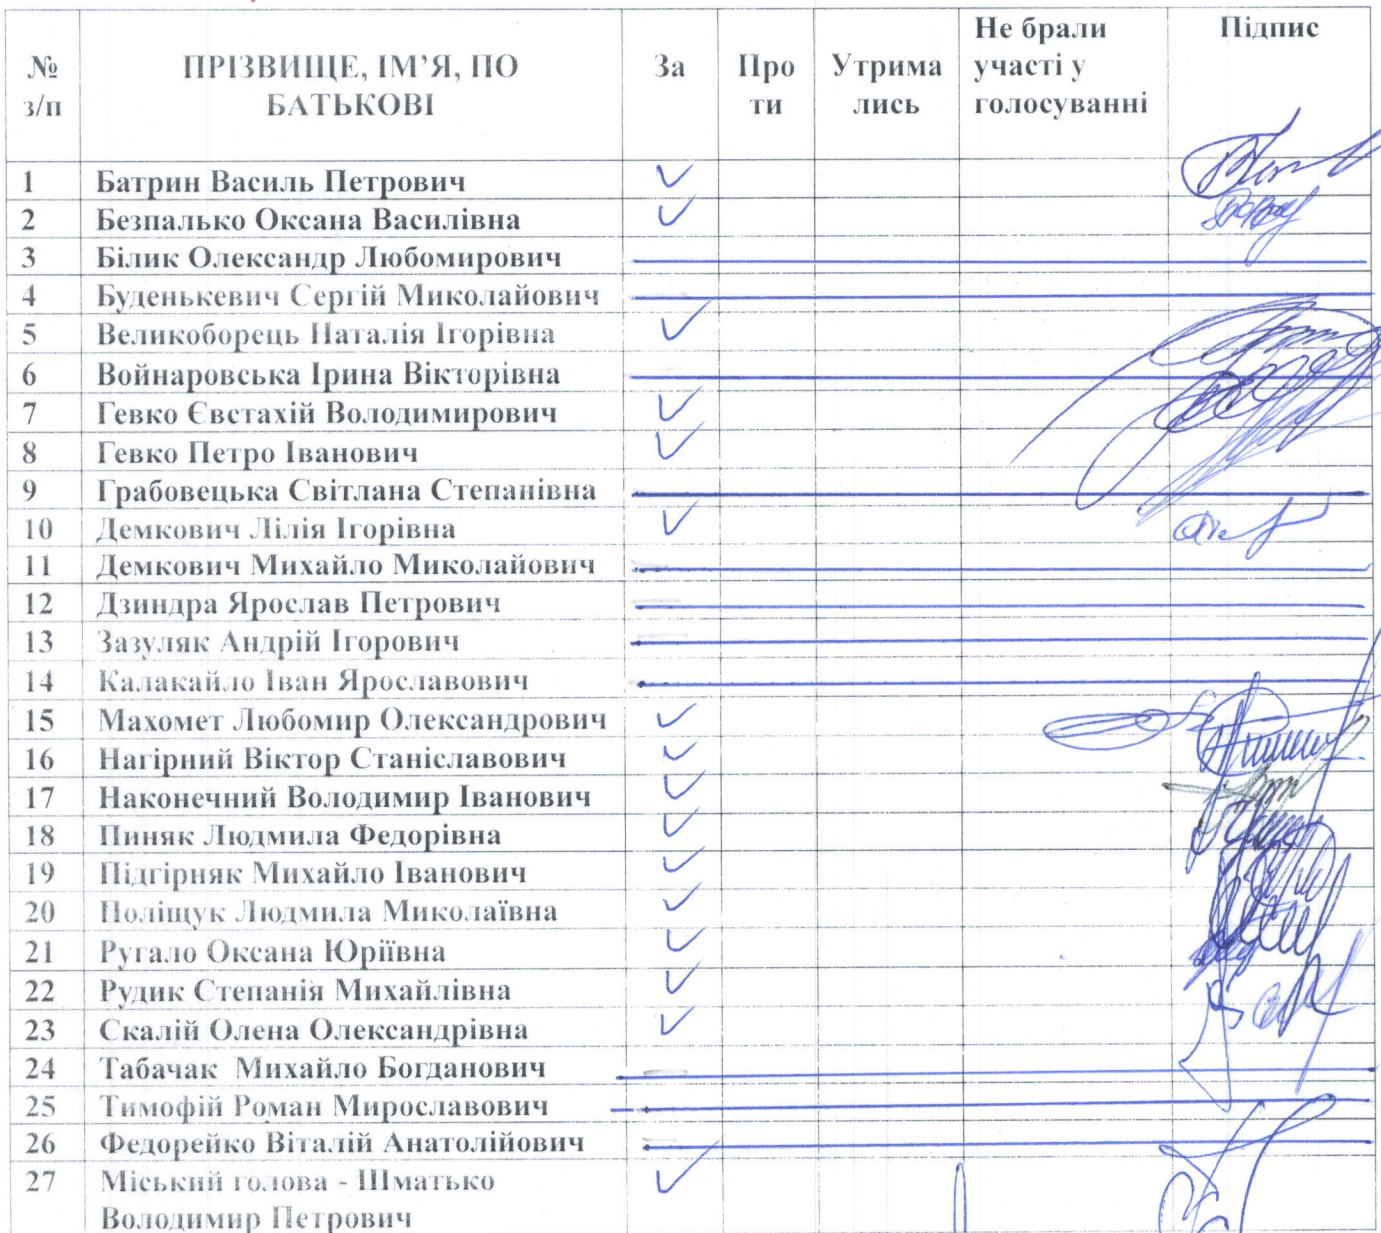 № з/п ПРІЗВИЩЕ, ІМ’Я, ПО БАТЬКОВІ За Про ти Утрима лись Не брали участі у голосуванні Підпис
1 Батрин Василь Петрович ✓
2 Безпалько Оксана Василівна ✓
3 Білик Олександр Любомирович
4 Буденькевич Сергій Миколайович
5 Великоборець Наталія Ігорівна ✓
6 Войнаровська Ірина Вікторівна
7 Гевко Євстахій Володимирович ✓
8 Гевко Петро Іванович ✓
9 Грабовецька Світлана Степанівна
10 Демкович Лілія Ігорівна ✓
11 Демкович Михайло Миколайович
12 Дзиндра Ярослав Петрович
13 Зазуляк Андрій Ігорович
14 Калакайло Іван Ярославович
15 Махомет Любомир Олександрович ✓
16 Нагірний Віктор Станіславович ✓
17 Наконечний Володимир Іванович ✓
18 Пиняк Людмила Федорівна ✓
19 Підгірняк Михайло Іванович ✓
20 Поліщук Людмила Миколаївна ✓
21 Ругало Оксана Юріївна ✓
22 Рудик Степанія Михайлівна ✓
23 Скалій Олена Олександрівна ✓
24 Табачак Михайло Богданович
25 Тимофій Роман Мирославович
26 Федорейко Віталій Анатолійович
27 Міський голова - Шматько ✓
Володимир Петрович